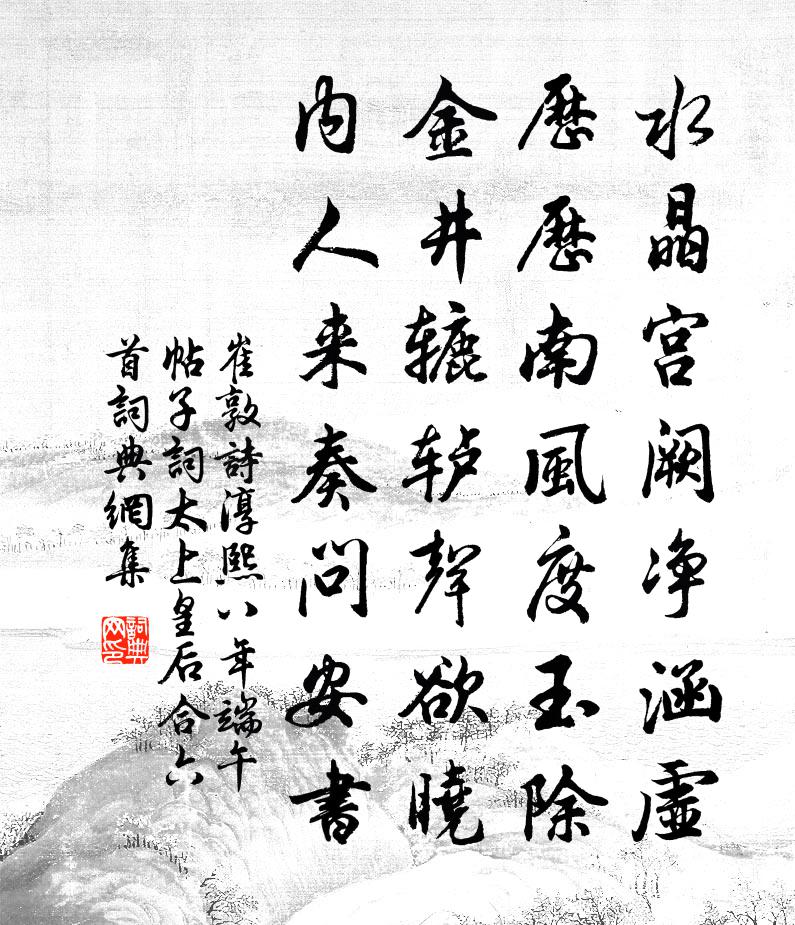 水晶宫阙净涵虚
歷歷南風度玉除
金井辘轳聲欲曉
内人来奏問安書
崔敦詩淳熙八年端午
帖子詞太上皇后合六
首詞典網集
詞典网印